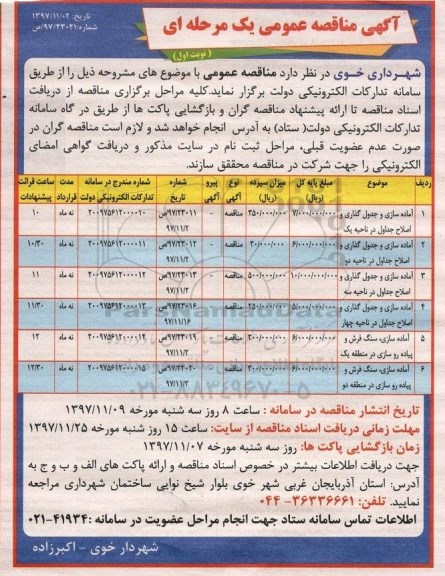 تاریخ: ۱۳۹۷/۱۱/۰۲
شماره: ۹۷/۲۳۰۲۱/ص
آگهی مناقصه عمومی یک مرحله ای
(نوبت اول)
شهرداری خوی در نظر دارد مناقصه عمومی با موضوع های مشروحه ذیل را از طریق
سامانه تدارکات الکترونیکی دولت برگزار نماید.کلیه مراحل برگزاری مناقصه از دریافت
اسناد مناقصه تا ارائه پیشنهاد مناقصه گران و بازگشایی پاکت ها از طریق در گاه سامانه
تدارکات الکترونیکی دولت( ستاد) به آدرس انجام خواهد شد و لازم است مناقصه گران در
صورت عدم عضویت قبلی، مراحل ثبت نام در سایت مذکور و دریافت گواهی امضای
الکترونیکی را جهت شرکت در مناقصه محققق سازند.
ردیف موضوع مبلغ پایه کل (ریال) میزان سپرده (ریال) نوع آگهی پیرو آگهی شماره تاریخ شماره مندرج در سامانه تدارکات الکترونیکی دولت مدت قرارداد ساعت قرائت پیشنهادات
۱ آماده سازی و جدول گذاری و اصلاح جداول در ناحیه یک ۷/۰۰۰/۰۰۰/۰۰۰ ۳۵۰/۰۰۰/۰۰۰ مناقصه - ۹۷/۲۳۰۱۱/ص ۹۷/۱۱/۲ ۲۰۰۹۷۵۶۱۲۰۰۰۰۱۰ نه ماه ۱۰
۲ آماده سازی و جدول گذاری و اصلاح جداول در ناحیه دو ۶/۰۰۰/۰۰۰/۰۰۰ ۳۰۰/۰۰۰/۰۰۰ مناقصه - ۹۷/۲۳۰۱۲/ص ۹۷/۱۱/۲ ۲۰۰۹۷۵۶۱۲۰۰۰۰۱۱ نه ماه ۱۰/۳۰
۳ آماده سازی و جدول گذاری و اصلاح جداول در ناحیه سه ۱۰/۰۰۰/۰۰۰/۰۰۰ ۵۰۰/۰۰۰/۰۰۰ مناقصه - ۹۷/۲۳۰۱۳/ص ۹۷/۱۱/۲ ۲۰۰۹۷۵۶۱۲۰۰۰۰۱۲ نه ماه ۱۱
۴ آماده سازی و جدول گذاری و اصلاح جداول در ناحیه چهار ۵/۰۰۰/۰۰۰/۰۰۰ ۲۵۰/۰۰۰/۰۰۰ مناقصه ۹۷/۱۱/۱۶ ۲۰۰۹۷۵۶۱۲۰۰۰۰۱۳ نه ماه ۱۱/۳۰
۵ آماده سازی، سنگ فرش و پیاده رو سازی در منطقه یک ۶/۰۰۰/۰۰۰/۰۰۰ ۳۰۰/۰۰۰/۰۰۰ مناقصه - ۹۷/۱۱/۲ ۲۰۰۹۷۵۶۱۲۰۰۰۰۱۴ نه ماه ۱۲
۶ آماده سازی، سنگ فرش و پیاده رو سازی در منطقه دو ۶/۰۰۰/۰۰۰/۰۰۰ ۳۰۰/۰۰۰/۰۰۰ مناقصه - ۹۷/۲۳۰۲۰/ص ۹۷/۱۱/۲ ۲۰۰۹۷۵۶۱۲۰۰۰۰۱۵ نه ماه ۱۲/۳۰
ParsNamadData
۰۲۱-۸۸۳۴۹۶۷۰-۵
تاریخ انتشار مناقصه در سامانه : ساعت ۸ روز سه شنبه مورخه ۱۳۹۷/۱۱/۰۹
مهلت زمانی دریافت اسناد مناقصه از سایت: ساعت ۱۵ روز سه شنبه مورخه ۱۳۹۷/۱۱/۲۵
زمان بازگشایی پاکت ها: روز سه شنبه مورخه ۱۳۹۷/۱۱/۰۷
جهت دریافت اطلاعات بیشتر در خصوص اسناد مناقصه و ارائه پاکت های الف و ب و ج به
آدرس: استان آذربایجان غربی شهر خوی بلوار شیخ نوایی ساختمان شهرداری مراجعه
نمایید. تلفن: ۳۶۳۳۶۶۶۱- ۰۴۴
اطلاعات تماس سامانه ستاد جهت انجام مراحل عضویت در سامانه :۴۱۹۳۴-۰۲۱
شهردار خوی - اکبرزاده